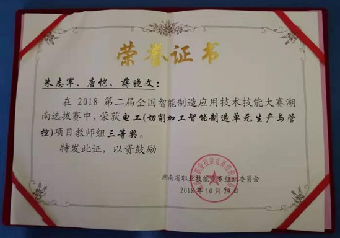 荣誉证书
朱志军、唐恺、蒋晓文：
在2018第二届全国智能制造应用技术技能大赛湖
南选拔赛中，荣获电工(切削加工智能制造单元生产与管
控)项目教师组三等奖。
特发此证，以资鼓励
湖南省职业技能竞赛组织委员会
2018年10月